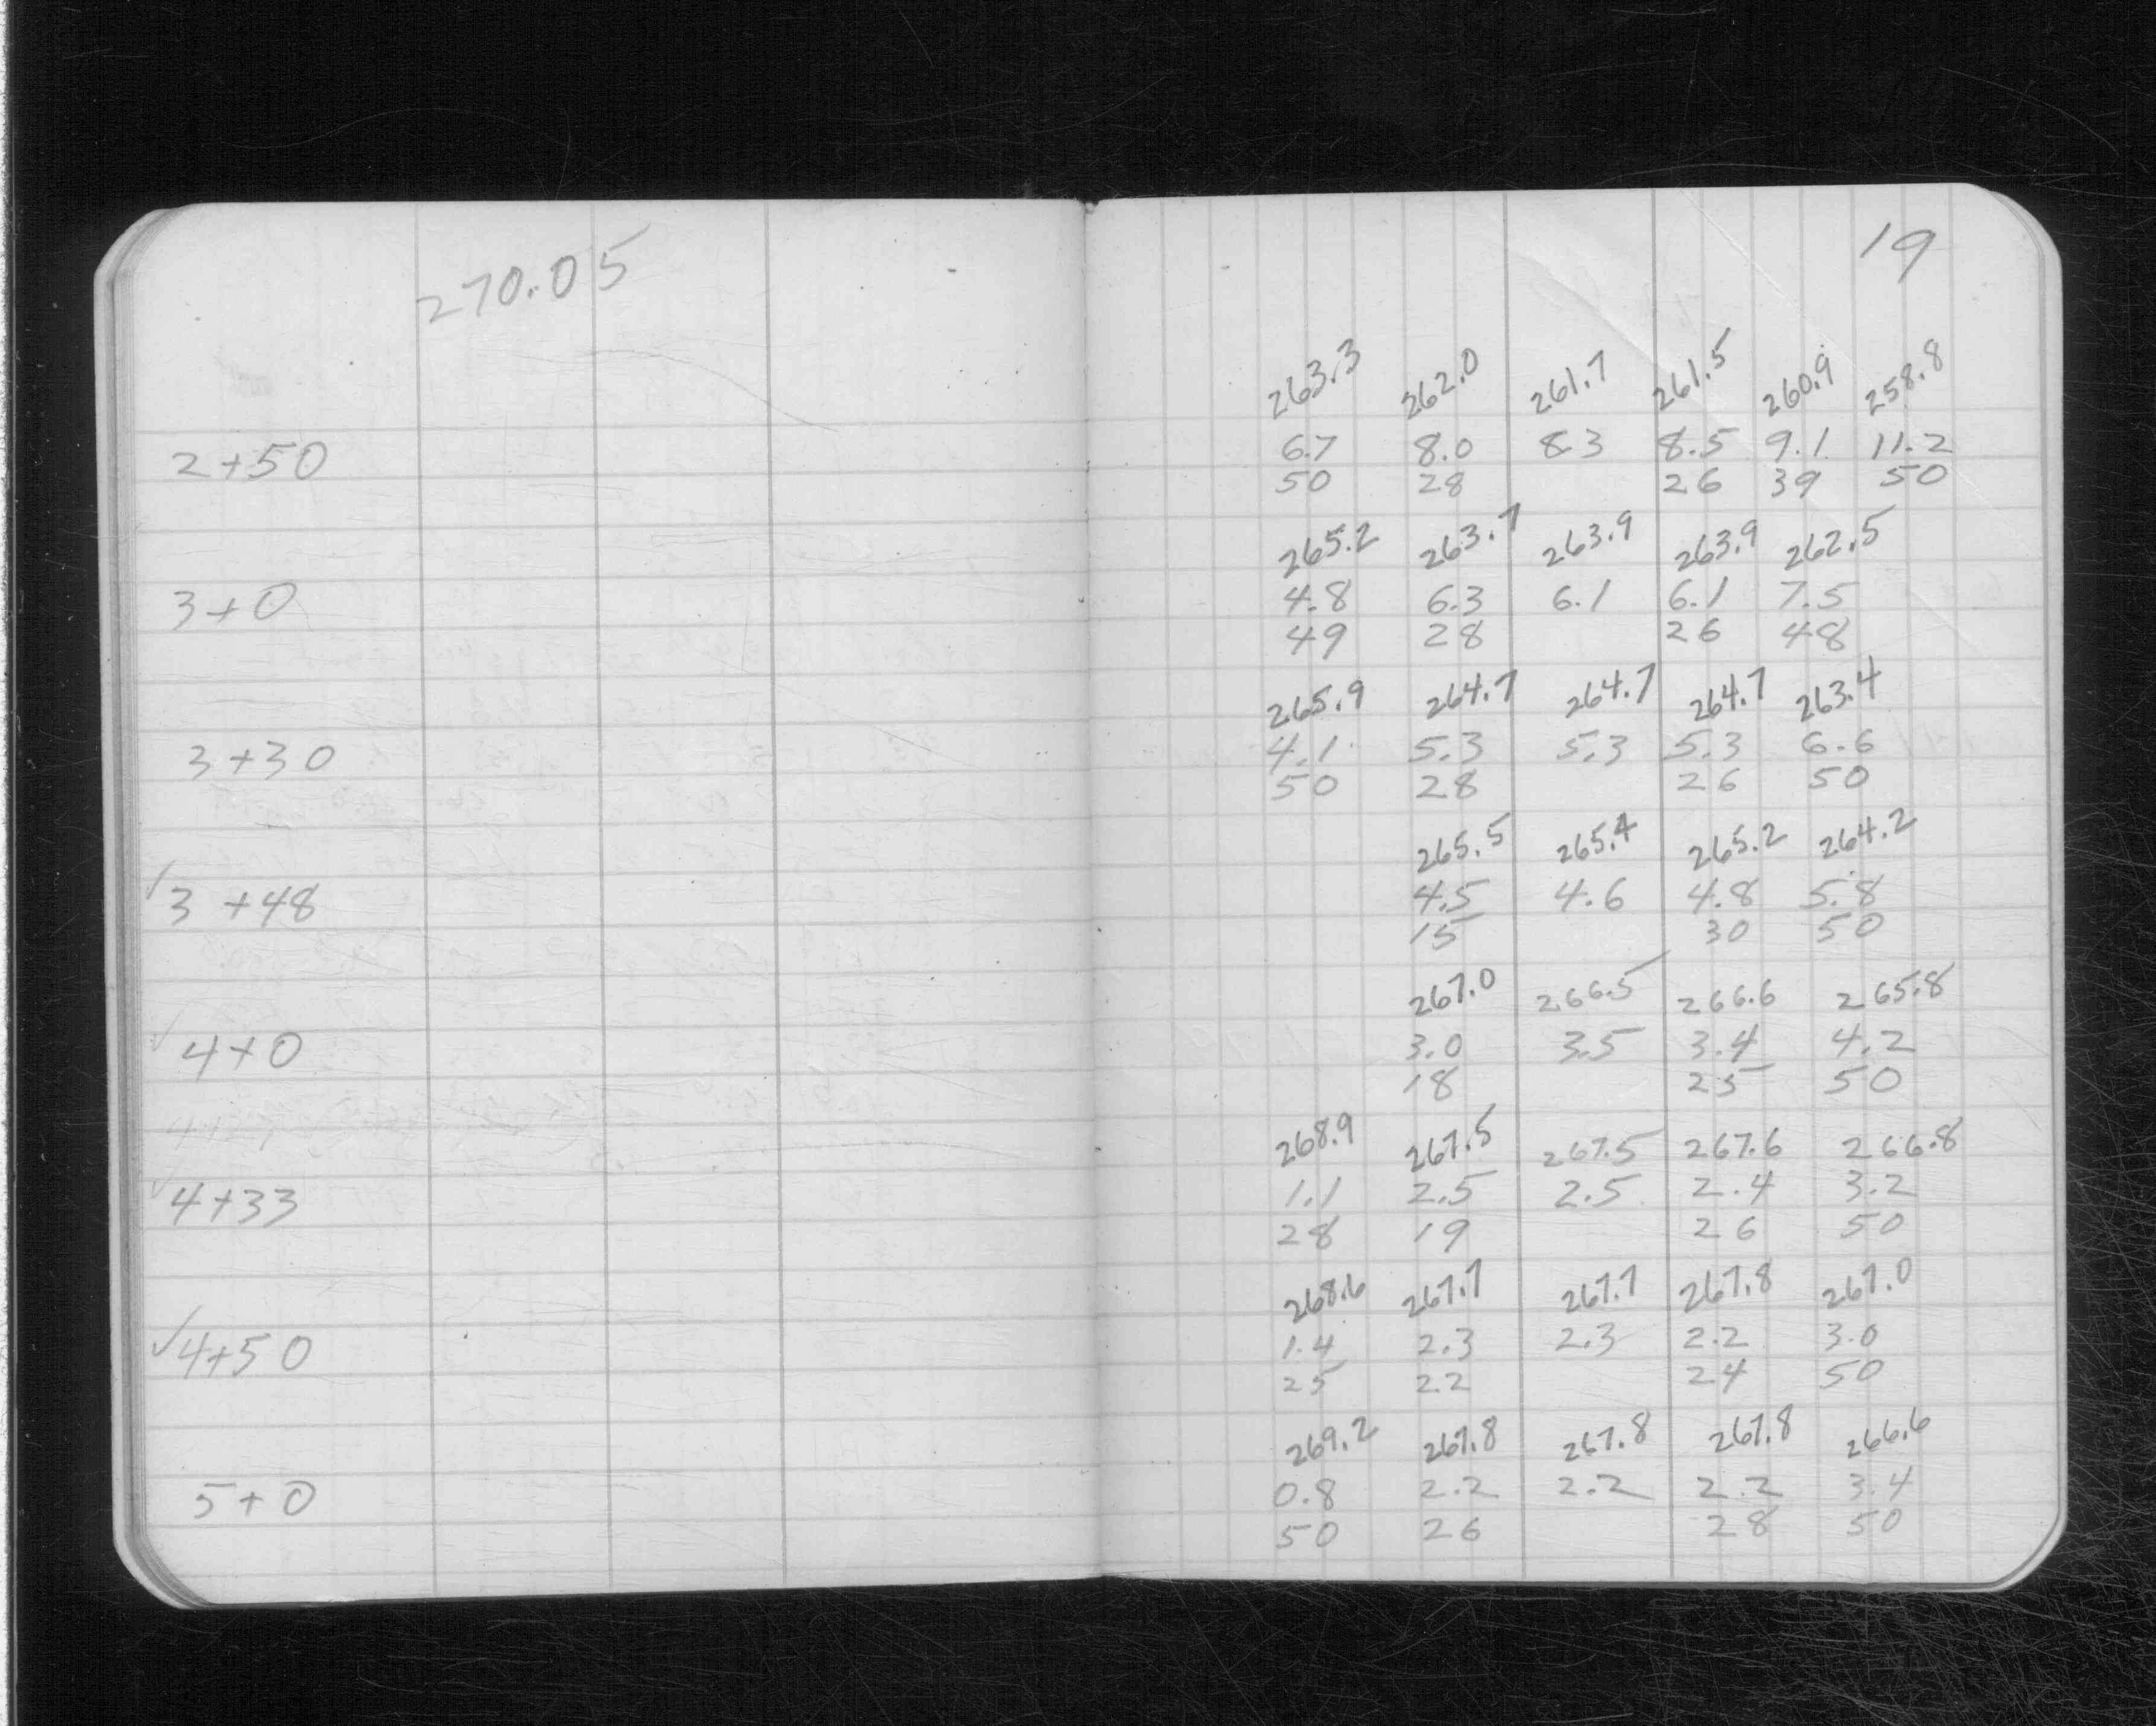 270.05
19
263.3 262.0 261.7 261.5 260.9 258.8
2+50 6.7 8.0 8.3 8.5 9.1 11.2
50 28 26 39 50
265.2 263.7 263.9 263.9 262.5
3+0 4.8 6.3 6.1 6.1 7.5
49 28 26 48
265.9 264.7 264.7 264.7 263.4
3+30 4.1 5.3 5.3 5.3 6.6
50 28 26 50
265.5 265.4 265.2 264.2
✓3+48 4.5 4.6 4.8 5.8
15 30 50
267.0 266.5 266.6 265.8
✓4+0 3.0 3.5 3.4 4.2
18 25 50
268.9 267.5 267.5 267.6 266.8
✓4+33 1.1 2.5 2.5 2.4 3.2
28 19 26 50
268.6 267.7 267.7 267.8 267.0
✓4+50 1.4 2.3 2.3 2.2 3.0
25 22 24 50
269.2 267.8 267.8 267.8 266.6
5+0 0.8 2.2 2.2 2.2 3.4
50 26 28 50